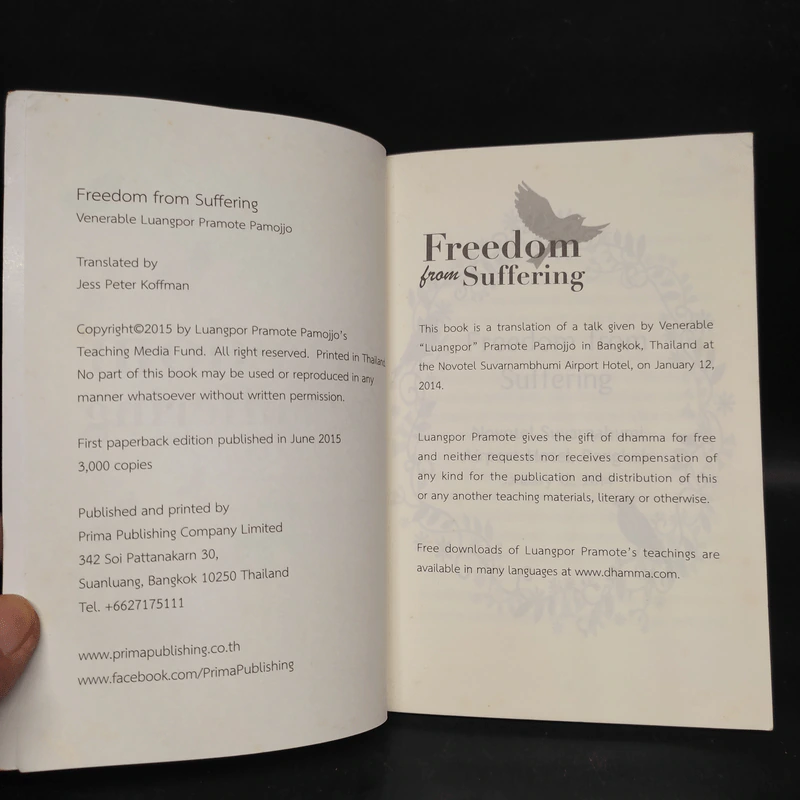 Freedom from Suffering
Venerable Luangpor Pramote Pamojjo
Translated by
Jess Peter Koffman
Copyright©2015 by Luangpor Pramote Pamojjo's
Teaching Media Fund. All right reserved. Printed in Thailand
No part of this book may be used or reproduced in any
manner whatsoever without written permission.
First paperback edition published in June 2015
3,000 copies
Published and printed by
Prima Publishing Company Limited
342 Soi Pattanakarn 30,
Suanluang, Bangkok 10250 Thailand
Tel. +6627175111
www.primapublishing.co.th
www.facebook.com/PrimaPublishing
Freedom
from Suffering
This book is a translation of a talk given by Venerable
"Luangpor" Pramote Pamojjo in Bangkok, Thailand at
the Novotel Suvarnambhumi Airport Hotel, on January 12,
2014.
Luangpor Pramote gives the gift of dhamma for free
and neither requests nor receives compensation of
any kind for the publication and distribution of this
or any another teaching materials, literary or otherwise.
Free downloads of Luangpor Pramote's teachings are
available in many languages at www.dhamma.com.